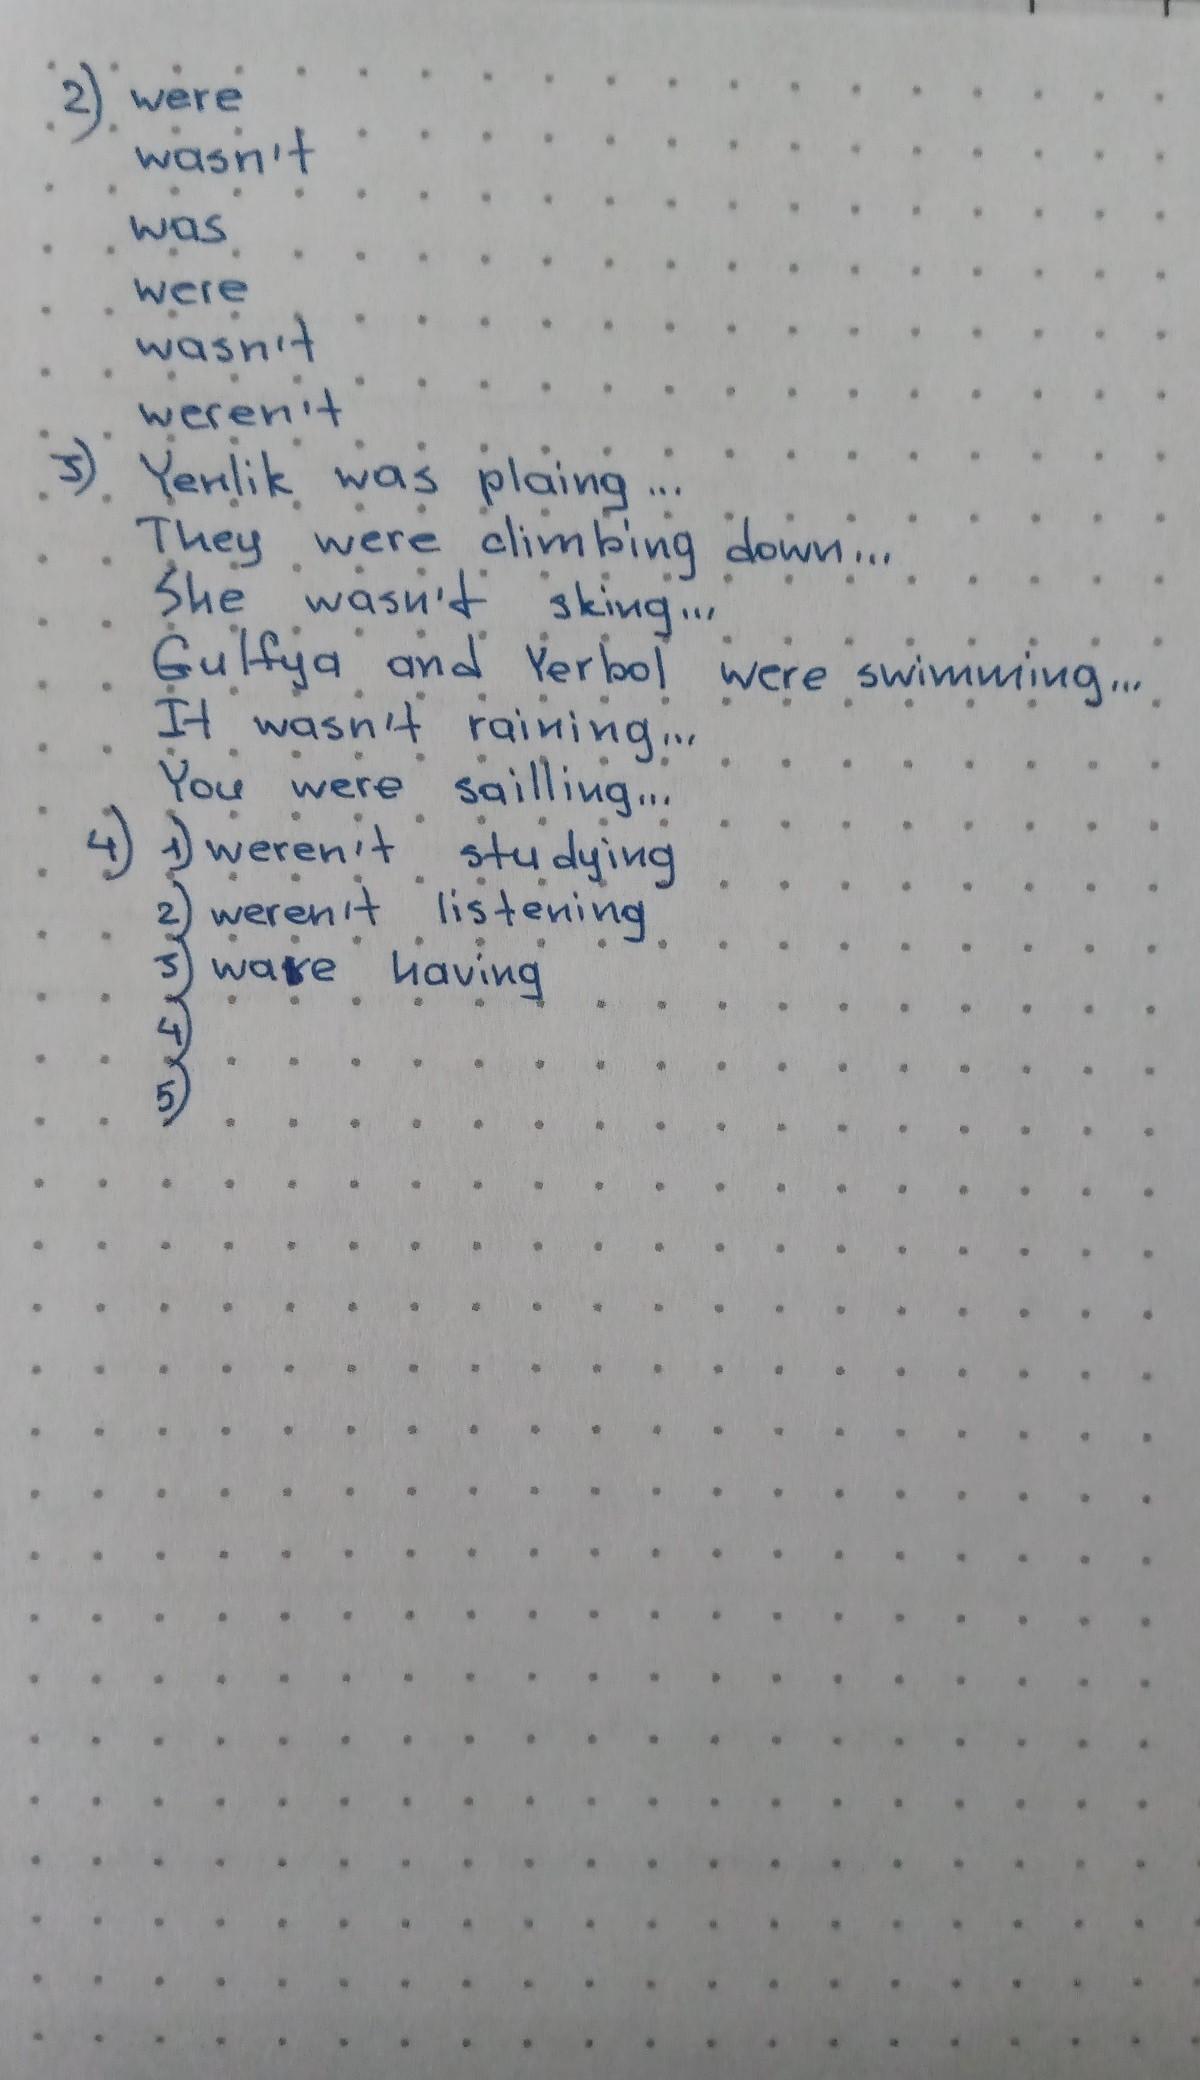 2) were
wasn't
was
were
wasn't
weren't
3) Yerlik was plaing...
They were climbing down...
She wasn't sking...
Gulfya and Yerbol were swimming...
It wasn't raining...
You were sailling...
4) 1) weren't studying
2) weren't listening
3) ware having
4)
5)